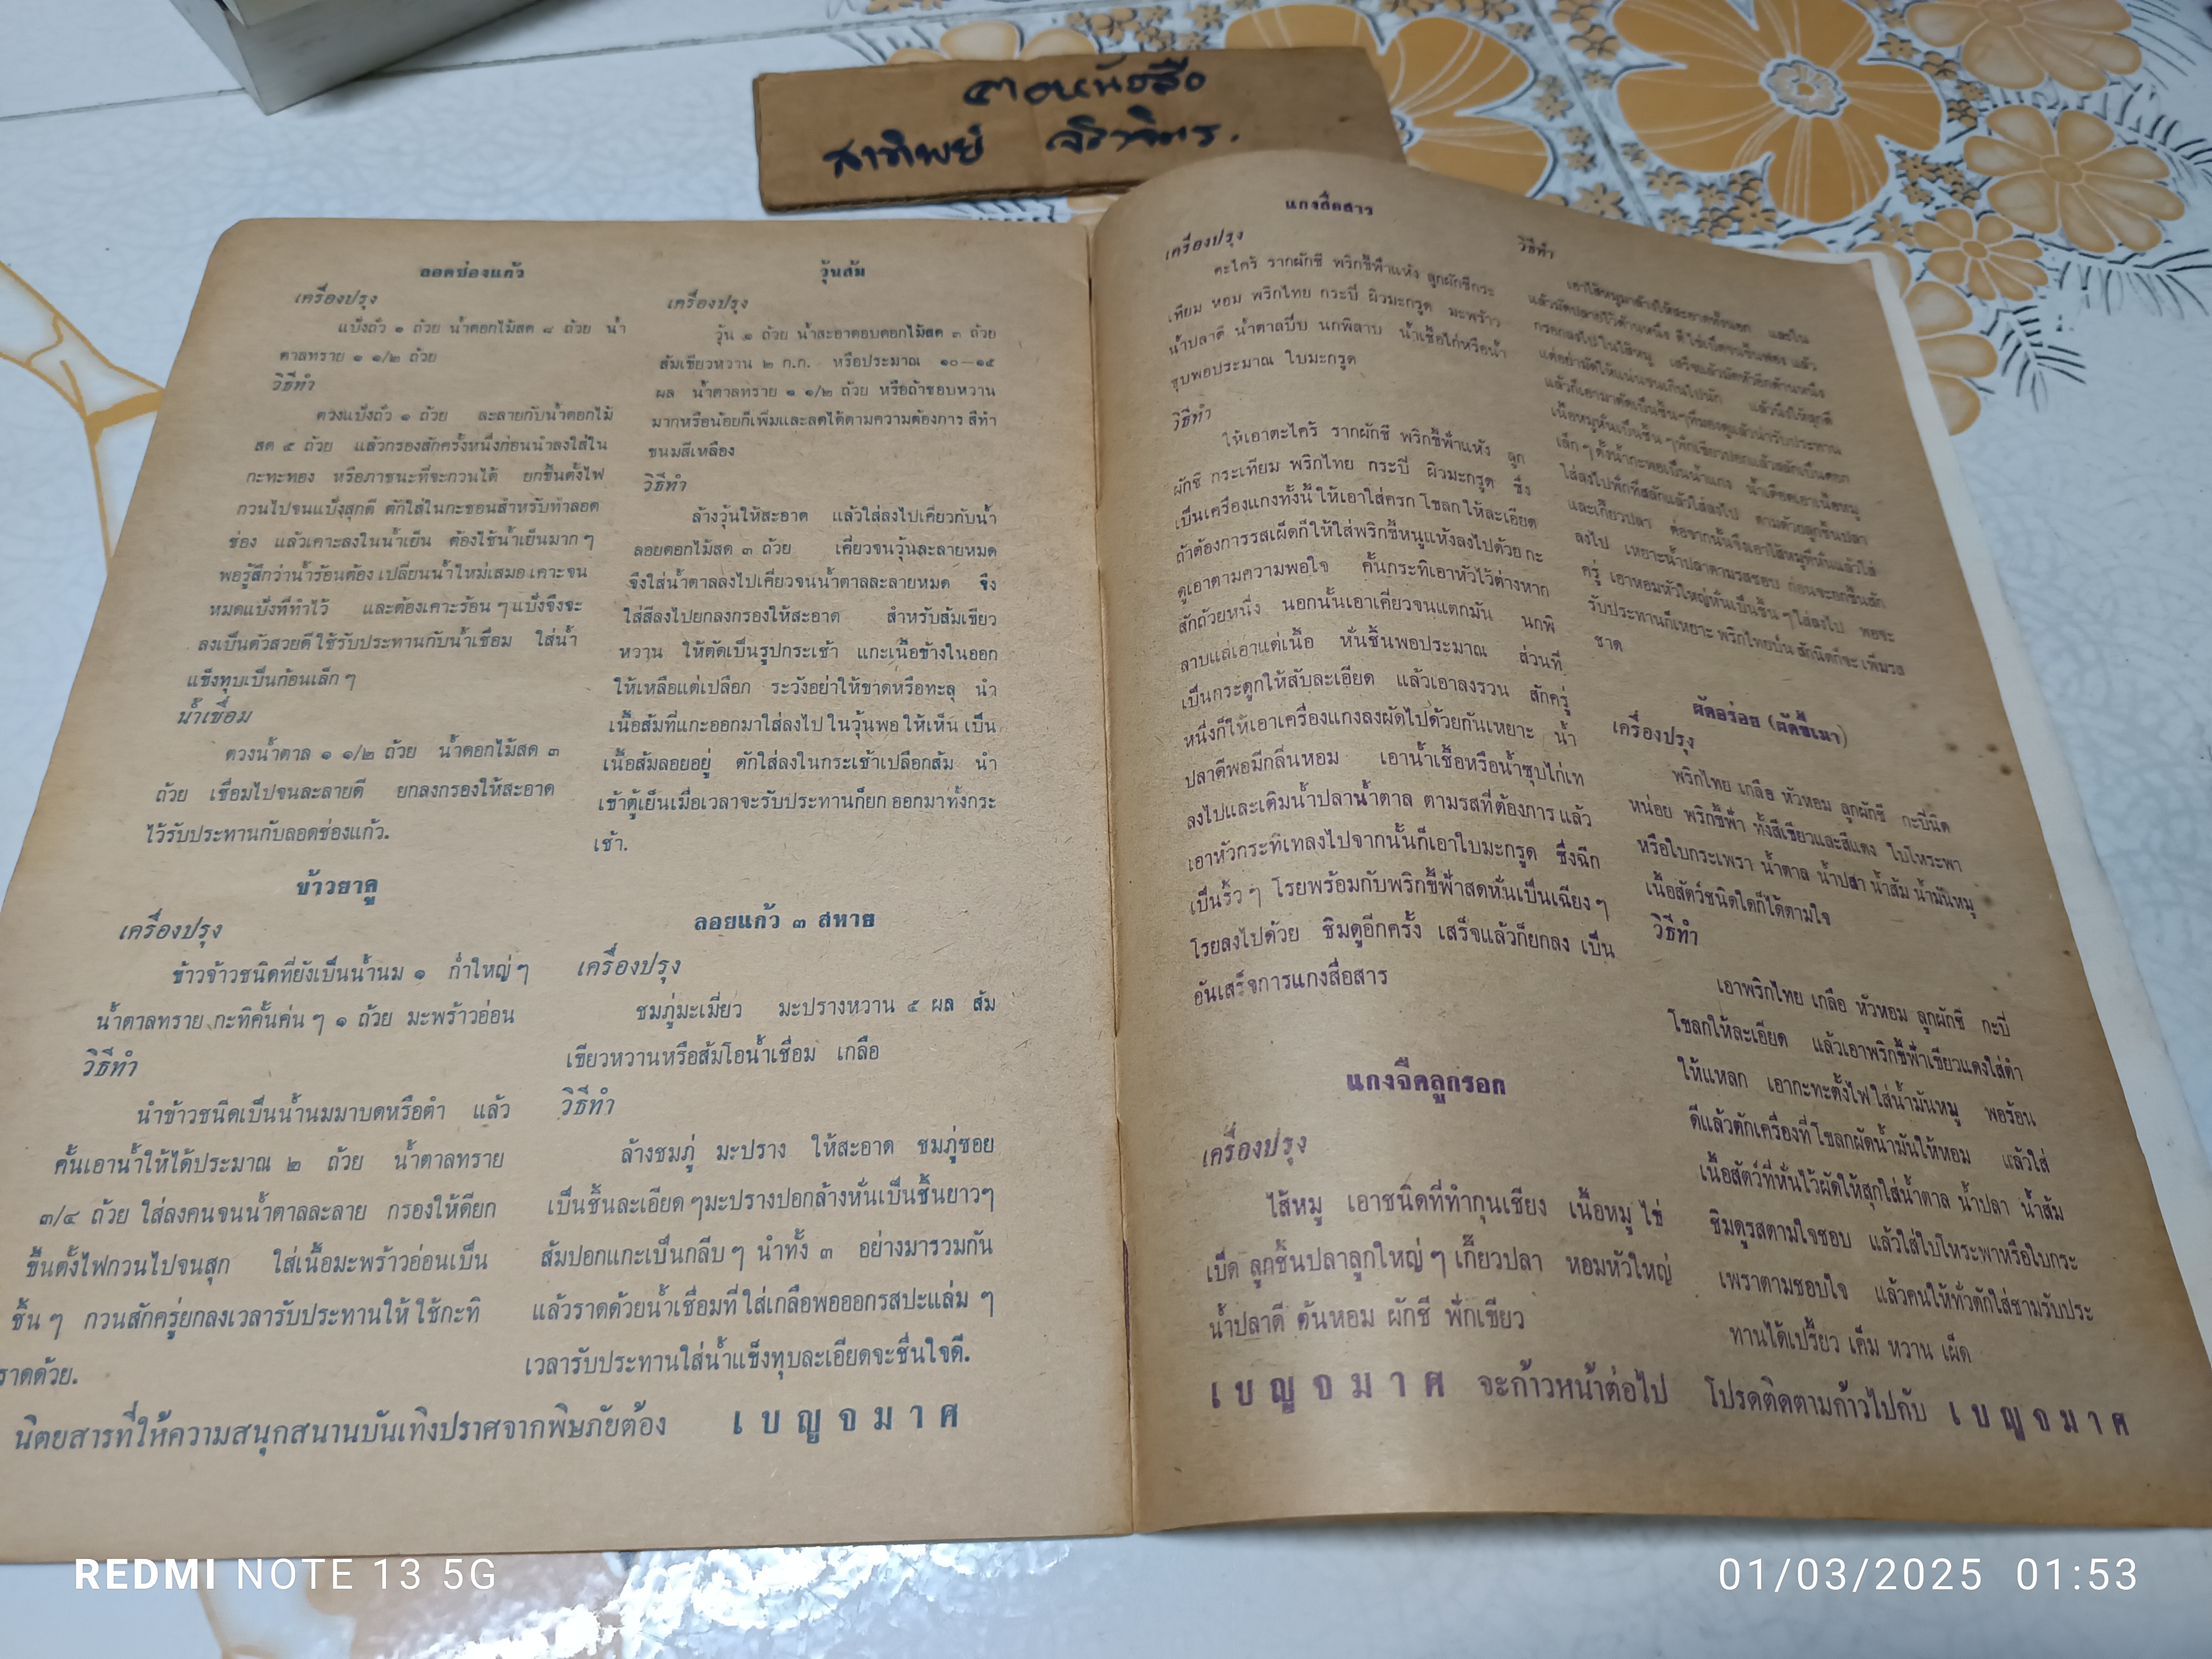 สาทิพย์
ลอดช่องแก้ว
เครื่องปรุง
แป้งถั่ว ๑ ถ้วย น้ำดอกไม้สด ๘ ถ้วย น้ำ
ตาลทราย ๑ ๑/๒ ถ้วย
วิธีทำ
ตวงแป้งถั่ว ๑ ถ้วย ละลายกับน้ำดอกไม้
สด ๕ ถ้วย แล้วกรองสักครั้งหนึ่งก่อนนำลงใส่ใน
กะทะทอง หรือภาชนะที่จะกวนได้ ยกขึ้นตั้งไฟ
กวนไปจนแป้งสุกดี ตักใส่ในกะชอนสำหรับทำลอด
ช่อง แล้วเคาะลงในน้ำเย็น ต้องใช้น้ำเย็นมาก ๆ
พอรู้สึกว่าน้ำร้อนต้อง เปลี่ยนน้ำใหม่เสมอ เคาะจน
หมดแป้งที่ทำไว้ และต้องเคาะร้อน ๆ แป้งจึงจะ
ลงเป็นตัวสวยดี ใช้รับประทานกับน้ำเชื่อม ใส่น้ำ
แข็งทุบเป็นก้อนเล็ก ๆ
น้ำเชื่อม
ตวงน้ำตาล ๑ ๑/๒ ถ้วย น้ำดอกไม้สด ๓
ถ้วย เชื่อมไปจนละลายดี ยกลงกรองให้สะอาด
ไว้รับประทานกับลอดช่องแก้ว.
ข้าวยาคู
เครื่องปรุง
ข้าวจ้าวชนิดที่ยังเป็นน้ำนม ๑ กำใหญ่ ๆ
น้ำตาลทราย กะทิคั้นค่น ๆ ๑ ถ้วย มะพร้าวอ่อน
วิธีทำ
นำข้าวชนิดเป็นน้ำนมมาบดหรือตำ แล้ว
คั้นเอาน้ำให้ได้ประมาณ ๒ ถ้วย น้ำตาลทราย
๓/๔ ถ้วย ใส่ลงคนจนน้ำตาลละลาย กรองให้ดียก
ขึ้นตั้งไฟกวนไปจนสุก ใส่เนื้อมะพร้าวอ่อนเป็น
ชิ้น ๆ กวนสักครู่ยกลงเวลารับประทานให้ ใช้กะทิ
ราดด้วย.
วุ้นส้ม
เครื่องปรุง
วุ้น ๑ ถ้วย น้ำสะอาดอบดอกไม้สด ๓ ถ้วย
ส้มเขียวหวาน ๒ ก.ก. หรือประมาณ ๑๐—๑๕
ผล น้ำตาลทราย ๑ ๑/๒ ถ้วย หรือถ้าชอบหวาน
มากหรือน้อยก็เพิ่มและลดได้ตามความต้องการ สีทำ
ขนมสีเหลือง
วิธีทำ
ล้างวุ้นให้สะอาด แล้วใส่ลงไปเคี่ยวกับน้ำ
ลอยดอกไม้สด ๓ ถ้วย เคี่ยวจนวุ้นละลายหมด
จึงใส่น้ำตาลลงไปเคี่ยวจนน้ำตาลละลายหมด จึง
ใส่สีลงไปยกลงกรองให้สะอาด สำหรับส้มเขียว
หวาน ให้ตัดเป็นรูปกระเช้า แกะเนื้อข้างในออก
ให้เหลือแต่เปลือก ระวังอย่าให้ขาดหรือทะลุ นำ
เนื้อส้มที่แกะออกมาใส่ลงไป ในวุ้นพอ ให้เห็น เป็น
เนื้อส้มลอยอยู่ ตักใส่ลงในกระเช้าเปลือกส้ม นำ
เข้าตู้เย็นเมื่อเวลาจะรับประทานก็ยก ออกมาทั้งกระ
เช้า.
ลอยแก้ว ๓ สหาย
เครื่องปรุง
ชมภู่มะเมี่ยว มะปรางหวาน ๕ ผล ส้ม
เขียวหวานหรือส้มโอน้ำเชื่อม เกลือ
วิธีทำ
ล้างชมภู่ มะปราง ให้สะอาด ชมภู่ซอย
เป็นชิ้นละเอียด ๆมะปรางปอกล้างหั่นเป็นชิ้นยาวๆ
ส้มปอกแกะเป็นกลีบ ๆ นำทั้ง ๓ อย่างมารวมกัน
แล้วราดด้วยน้ำเชื่อมที่ ใส่เกลือพอออกรสปะแล่ม ๆ
เวลารับประทานใส่น้ำแข็งทุบละเอียดจะชื่นใจดี.
นิตยสารที่ให้ความสนุกสนานบันเทิงปราศจากพิษภัยต้อง เ บ ญ จ ม า ศ
แกงสื่อสาร
เครื่องปรุง
ตะไคร้ รากผักชี พริกชี้ฟ้าแห้ง ลูกผักชีกระ
เทียม หอม พริกไทย กระปี่ ผิวมะกรูด มะพร้าว
น้ำปลาดี น้ำตาลปี๊บ นกพิลาบ น้ำเชื้อไก่หรือน้ำ
ซุบพอประมาณ ใบมะกรูด
วิธีทำ
ให้เอาตะไคร้ รากผักชี พริกชี้ฟ้าแห้ง ลูก
ผักชี กระเทียม พริกไทย กระปี่ ผิวมะกรูด ซึ่ง
เป็นเครื่องแกงทั้งนี้ ให้เอาใส่ครก โขลกให้ละเอียด
ถ้าต้องการรสเผ็ดก็ให้ใส่พริกขี้หนูแห้งลงไปด้วย กะ
ดูเอาตามความพอใจ คั้นกระทิเอาหัวไว้ต่างหาก
สักถ้วยหนึ่ง นอกนั้นเอาเคี่ยวจนแตกมัน นกพิ
ลาบแล่เอาแต่เนื้อ หั่นชิ้นพอประมาณ ส่วนที่
เป็นกระดูกให้สับละเอียด แล้วเอาลงรวน สักครู่
หนึ่งก็ให้เอาเครื่องแกงลงผัดไปด้วยกันเหยาะ น้ำ
ปลาดีพอมีกลิ่นหอม เอาน้ำเชื้อหรือน้ำซุบไก่เท
ลงไปและเติมน้ำปลาน้ำตาล ตามรสที่ต้องการ แล้ว
เอาหัวกระทิเทลงไปจากนั้นก็เอาใบมะกรูด ซึ่งฉีก
เป็นริ้ว ๆ โรยพร้อมกับพริกชี้ฟ้าสดหั่นเป็นเฉียง ๆ
โรยลงไปด้วย ชิมดูอีกครั้ง เสร็จแล้วก็ยกลง เป็น
อันเสร็จการแกงสื่อสาร
แกงจืดลูกรอก
เครื่องปรุง
ไส้หมู เอาชนิดที่ทำกุนเชียง เนื้อหมู ไข่
เป็ด ลูกชิ้นปลาลูกใหญ่ ๆ เกี๊ยวปลา หอมหัวใหญ่
น้ำปลาดี ต้นหอม ผักชี ฟักเขียว
วิธีทำ
เอาไส้หมูมาล้างให้สะอาดทั้งนอก และใน
แล้วมัดปลายไว้ด้านหนึ่ง ตีไข่เป็ดจนขึ้นฟอง แล้ว
กรอกลงไปในไส้หมู เสร็จแล้วมัดหัวอีกด้านหนึ่ง
แต่อย่ามัดให้แน่นจนเกินไปนัก แล้วนึ่งให้สุกดี
แล้วก็เอามาตัดเป็นชิ้นๆที่มองดูแล้วน่ารับประทาน
เนื้อหมูหั่นเป็นชิ้น ๆฟักเขียวปอกแล้วสลักเป็นดอก
เล็ก ๆ ตั้งน้ำกะพอเป็นน้ำแกง น้ำเดือดเอาเนื้อหมู
ใส่ลงไปฟักที่สลักแล้วใส่ลงไป ตามด้วยลูกชิ้นปลา
และเกี๊ยวปลา ต่อจากนั้นจึงเอาไส้หมูที่หั่นแล้วใส่
ลงไป เหยาะน้ำปลาตามรสชอบ ก่อนจะยกขึ้นสัก
ครู่ เอาหอมหัวใหญ่หั่นเป็นชิ้น ๆ ใส่ลงไป พอจะ
รับประทานก็เหยาะ พริกไทยป่น สักนิดก็จะ เพิ่มรส
ชาด
ผัดอร่อย (ผัดขี้เมา)
เครื่องปรุง
พริกไทย เกลือ หัวหอม ลูกผักชี กะปินิด
หน่อย พริกชี้ฟ้า ทั้งสีเขียวและสีแดง ใบโหระพา
หรือใบกระเพรา น้ำตาล น้ำปลา น้ำส้ม น้ำมันหมู
เนื้อสัตว์ชนิดใดก็ได้ตามใจ
วิธีทำ
เอาพริกไทย เกลือ หัวหอม ลูกผักชี กะปี่
โขลกให้ละเอียด แล้วเอาพริกชี้ฟ้าเขียวแดงใส่ตำ
ให้แหลก เอากะทะตั้งไฟ ใส่น้ำมันหมู พอร้อน
ดีแล้วตักเครื่องที่ โขลกผัดน้ำมันให้หอม แล้วใส่
เนื้อสัตว์ที่หั่นไว้ผัดให้สุกใส่น้ำตาล น้ำปลา น้ำส้ม
ชิมดูรสตามใจชอบ แล้วใส่ใบโหระพาหรือใบกระ
เพราตามชอบใจ แล้วคนให้ทั่วตักใส่ชามรับประ
ทานได้เปรี้ยว เค็ม หวาน เผ็ด
เ บ ญ จ ม า ศ จะก้าวหน้าต่อไป โปรดติดตามก้าวไปกับ เ บ ญ จ ม า ศ
REDMI NOTE 13 5G
01/03/2025 01:53